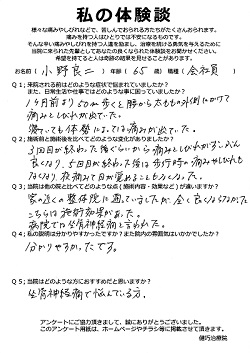 私の体験談
様々な痛みやしびれなどで、苦しんでおられる方たちがたくさんおられます。
痛みを持つ人はひとりでは不安になるものです。
そんな辛い痛みやしびれを持つ人達を励まし、治療を続ける勇気を与えるために
当院に来られた先輩としてあなたの良くなられた体験談をお寄せください。
希望を持てる人は奇跡の結果を見せることがあります。
お名前（小野良二）年齢（65歳）職種（会社員）
Q１；来院される前はどのような症状で悩まれていましたか？
また、日常生活や仕事上ではどのような事に困っていましたか？
50m歩くと腰から太ももの外側にかけて
痛みとしびれが出て、
座っても体勢によっては痛みが出ていた。
Q２；施術前と施術後を比べてどのような変化がありましたか？
3回目が終わった後ぐらいから痛みとしびれが少しずつ
良くなり、5回目が終わった後は歩行時の痛みやしびれも
なくなり、夜痛みで目が覚めることもなくなった。
Q３；当院は他の院と比べてどのような点（施術内容・効果など）が違いますか？
家の近くの整体院に通っていましたが、全く良くならなかった。
こちらは施術効果があった。
病院では坐骨神経痛と言われた。
Q４；私の説明は分かりやすかったですか？また院内の雰囲気はいかがでしたか？
分かりやすかったです。
Q５；当院はどのような方におすすめだと思いますか？
坐骨神経痛で悩んでいる方。
アンケートにご協力頂きまして、誠にありがとうございました。
このアンケート用紙は、ホームページやチラシ等に掲載させて頂きます。
健巧治療院